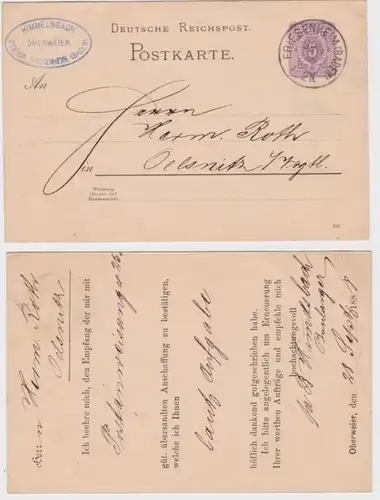 HIMMELSBACH
OBERWEIER
DEUTSCHE REICHSPOST.
POSTKARTE.
FRIESENHEIM (BADEN)
5
An
Herrn
Herm. Roth
in Oelsnitz i/Vogtl.
Wohnung
(Strasse und
Hausnummer)
Herrn Herm. Roth
Oelsnitz
Ich beehre mich, den Empfang der mir mit
Postanweisung
güt. übersandten Anschaffung zu bestätigen,
welche ich Ihnen
laut Aufgabe
höflich dankend gutgeschrieben habe.
Ich bitte angelegentlich um Erneuerung
Ihrer werthen Aufträge und empfehle mich
hochachtungsvoll
Himmelsbach
Oberweier, den 28 Septbr 188